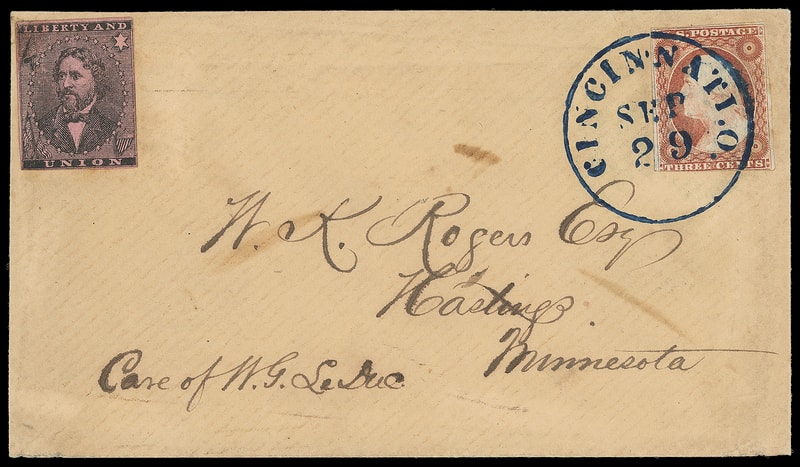 LIBERTY AND
UNION
CINCINNATI.O.
SEP
29
U.S. POSTAGE
THREE CENTS
W. K. Rogers Esq
Hastings
Minnesota
Care of W. G. Le Duc